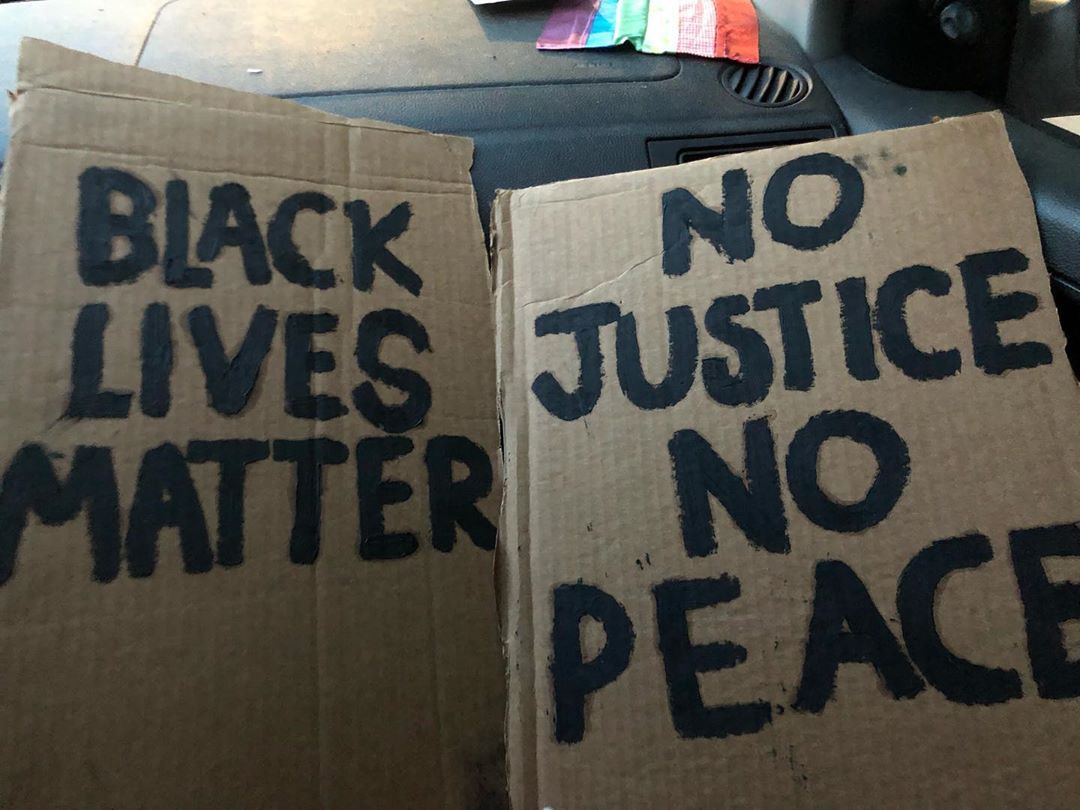 BLACK
LIVES
MATTER
NO
JUSTICE
NO
PEACE